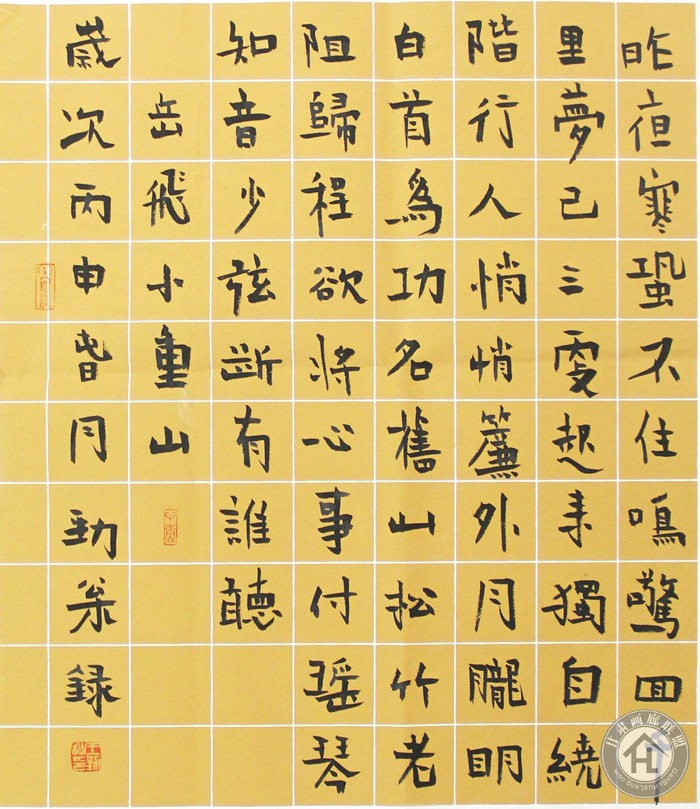 昨夜寒蛩不住鳴驚回
里夢已三更起来獨自繞
階行人悄悄簾外月朧明
白首為功名舊山松竹老
阻歸程欲將心事付瑶琴
知音少弦斷有誰聽
岳飛小重山
歲次丙申春月勁録
甘肃画廊联盟
GanSuHuaLang.com